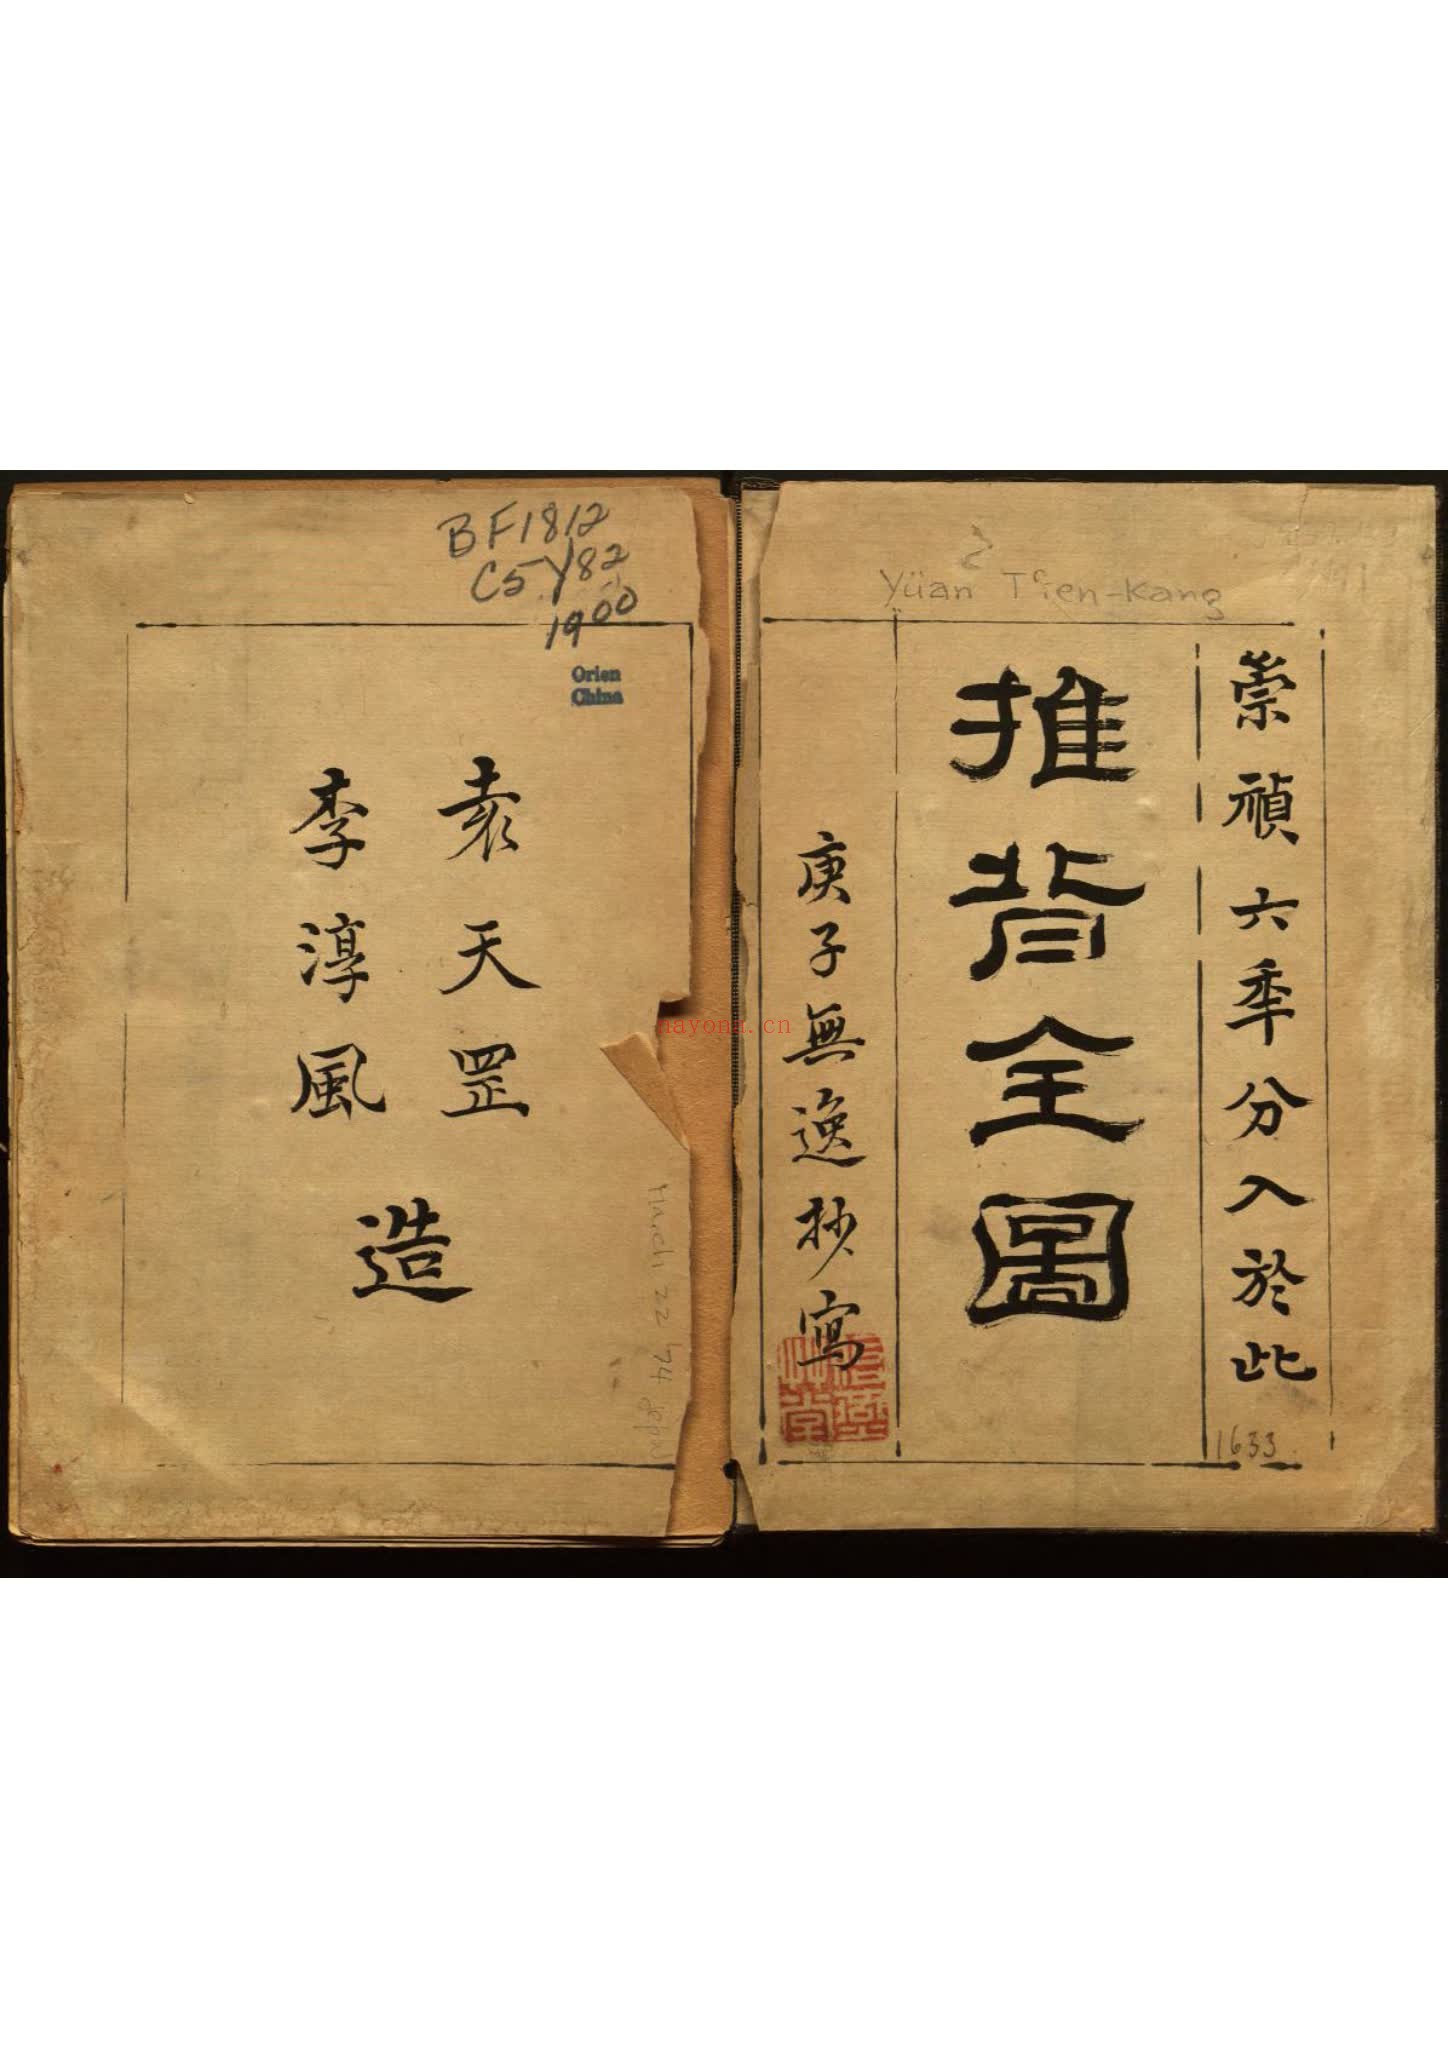 Yüan Tʻien-Kang
崇禎六季分入於此
1633
推背全圖
庚子無逸抄寫
BF1812
C5Y82
1900
Orien
China
袁天罡
李淳風
造
March 22 '74
nayona.cn